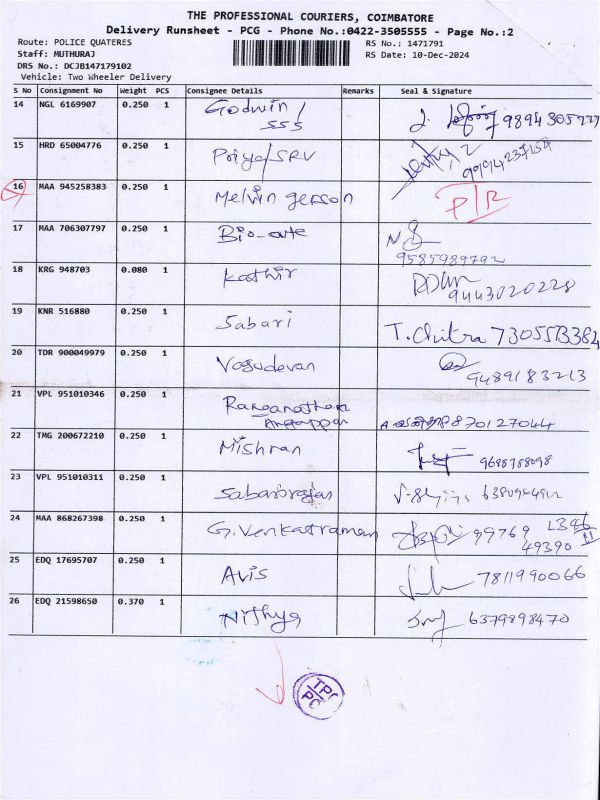 THE PROFESSIONAL COURIERS, COIMBATORE
Delivery Runsheet - PCG - Phone No.:0422-3505555 - Page No.:2
Route: POLICE QUATERES
RS No.: 1471791
Staff: MUTHURAJ
RS Date: 10-Dec-2024
DRS No.: DCJB147179102
Vehicle: Two Wheeler Delivery
S No Consignment No Weight PCS Consignee Details Remarks Seal & Signature
14 NGL 6169907 0.250 1 Godwin/ 
SSS
15 HRD 65004776 0.250 1 Priya/SRV
16 MAA 945258383 0.250 1 Melvin gerson P/R
17 MAA 706307797 0.250 1 Bio-cute
9585989792
18 KRG 948703 0.080 1 Kathir
9443020228
19 KNR 516880 0.250 1 Sabari T. Chitra 7305513384
20 TDR 900049979 0.250 1 Vasudevan
9489183213
21 VPL 951010346 0.250 1 Ranganathan
Angappan 8870127044
22 TMG 200672210 0.250 1 Mishran
23 VPL 951010311 0.250 1 Sabarirajan
24 MAA 868267398 0.250 1 G. Venkatraman 99769
49390
25 EDQ 17695707 0.250 1 Avis 7811990066
26 EDQ 21598650 0.370 1 Nithya 6379898470
TPC
PC